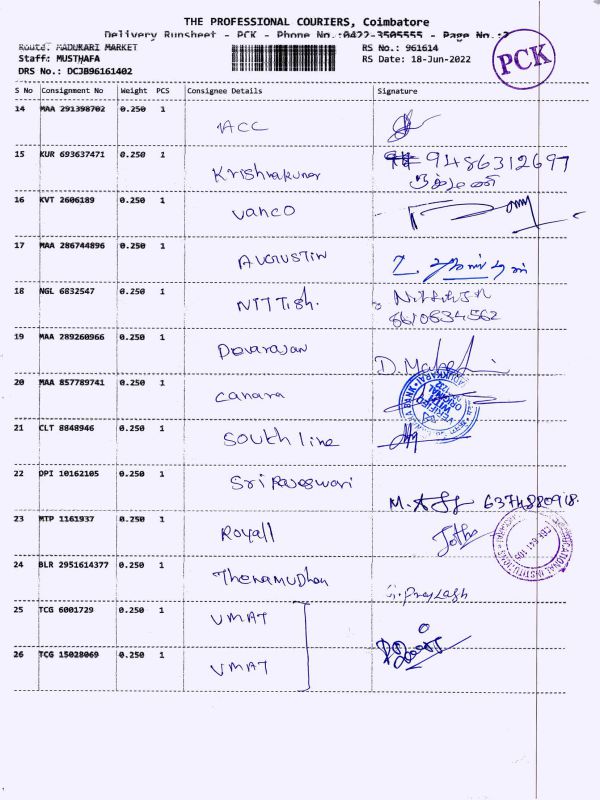 THE PROFESSIONAL COURIERS, Coimbatore
Delivery Runsheet - PCK - Phone No.:0422-3505555 - Page No.:2
Route. MADUKARI MARKET
RS No.: 961614
Staff: MUSTHAFA
RS Date: 18-Jun-2022
DRS No.: DCJB96161402
PCK
S No Consignment No Weight PCS Consignee Details Signature
14 MAA 291398702 0.250 1
ACC
15 KUR 693637471 0.250 1
Krishnakumar 9486312697
16 KVT 2606189 0.250 1
Vanco
17 MAA 286744896 0.250 1
AUGUSTIN
18 NGL 6832547 0.250 1
NITTISh.
19 MAA 289260966 0.250 1
Devarajan
20 MAA 857789741 0.250 1
canara
VERIFIED WITH ORIGINAL
21 CLT 8848946 0.250 1
South line
22 DPI 10162105 0.250 1
Sri Rajeswari
6374880918.
23 MTP 1161937 0.250 1
Royall
24 BLR 2951614377 0.250 1
Thenamudhan
25 TCG 6001729 0.250 1
VMAT
26 TCG 15028069 0.250 1
VMAT